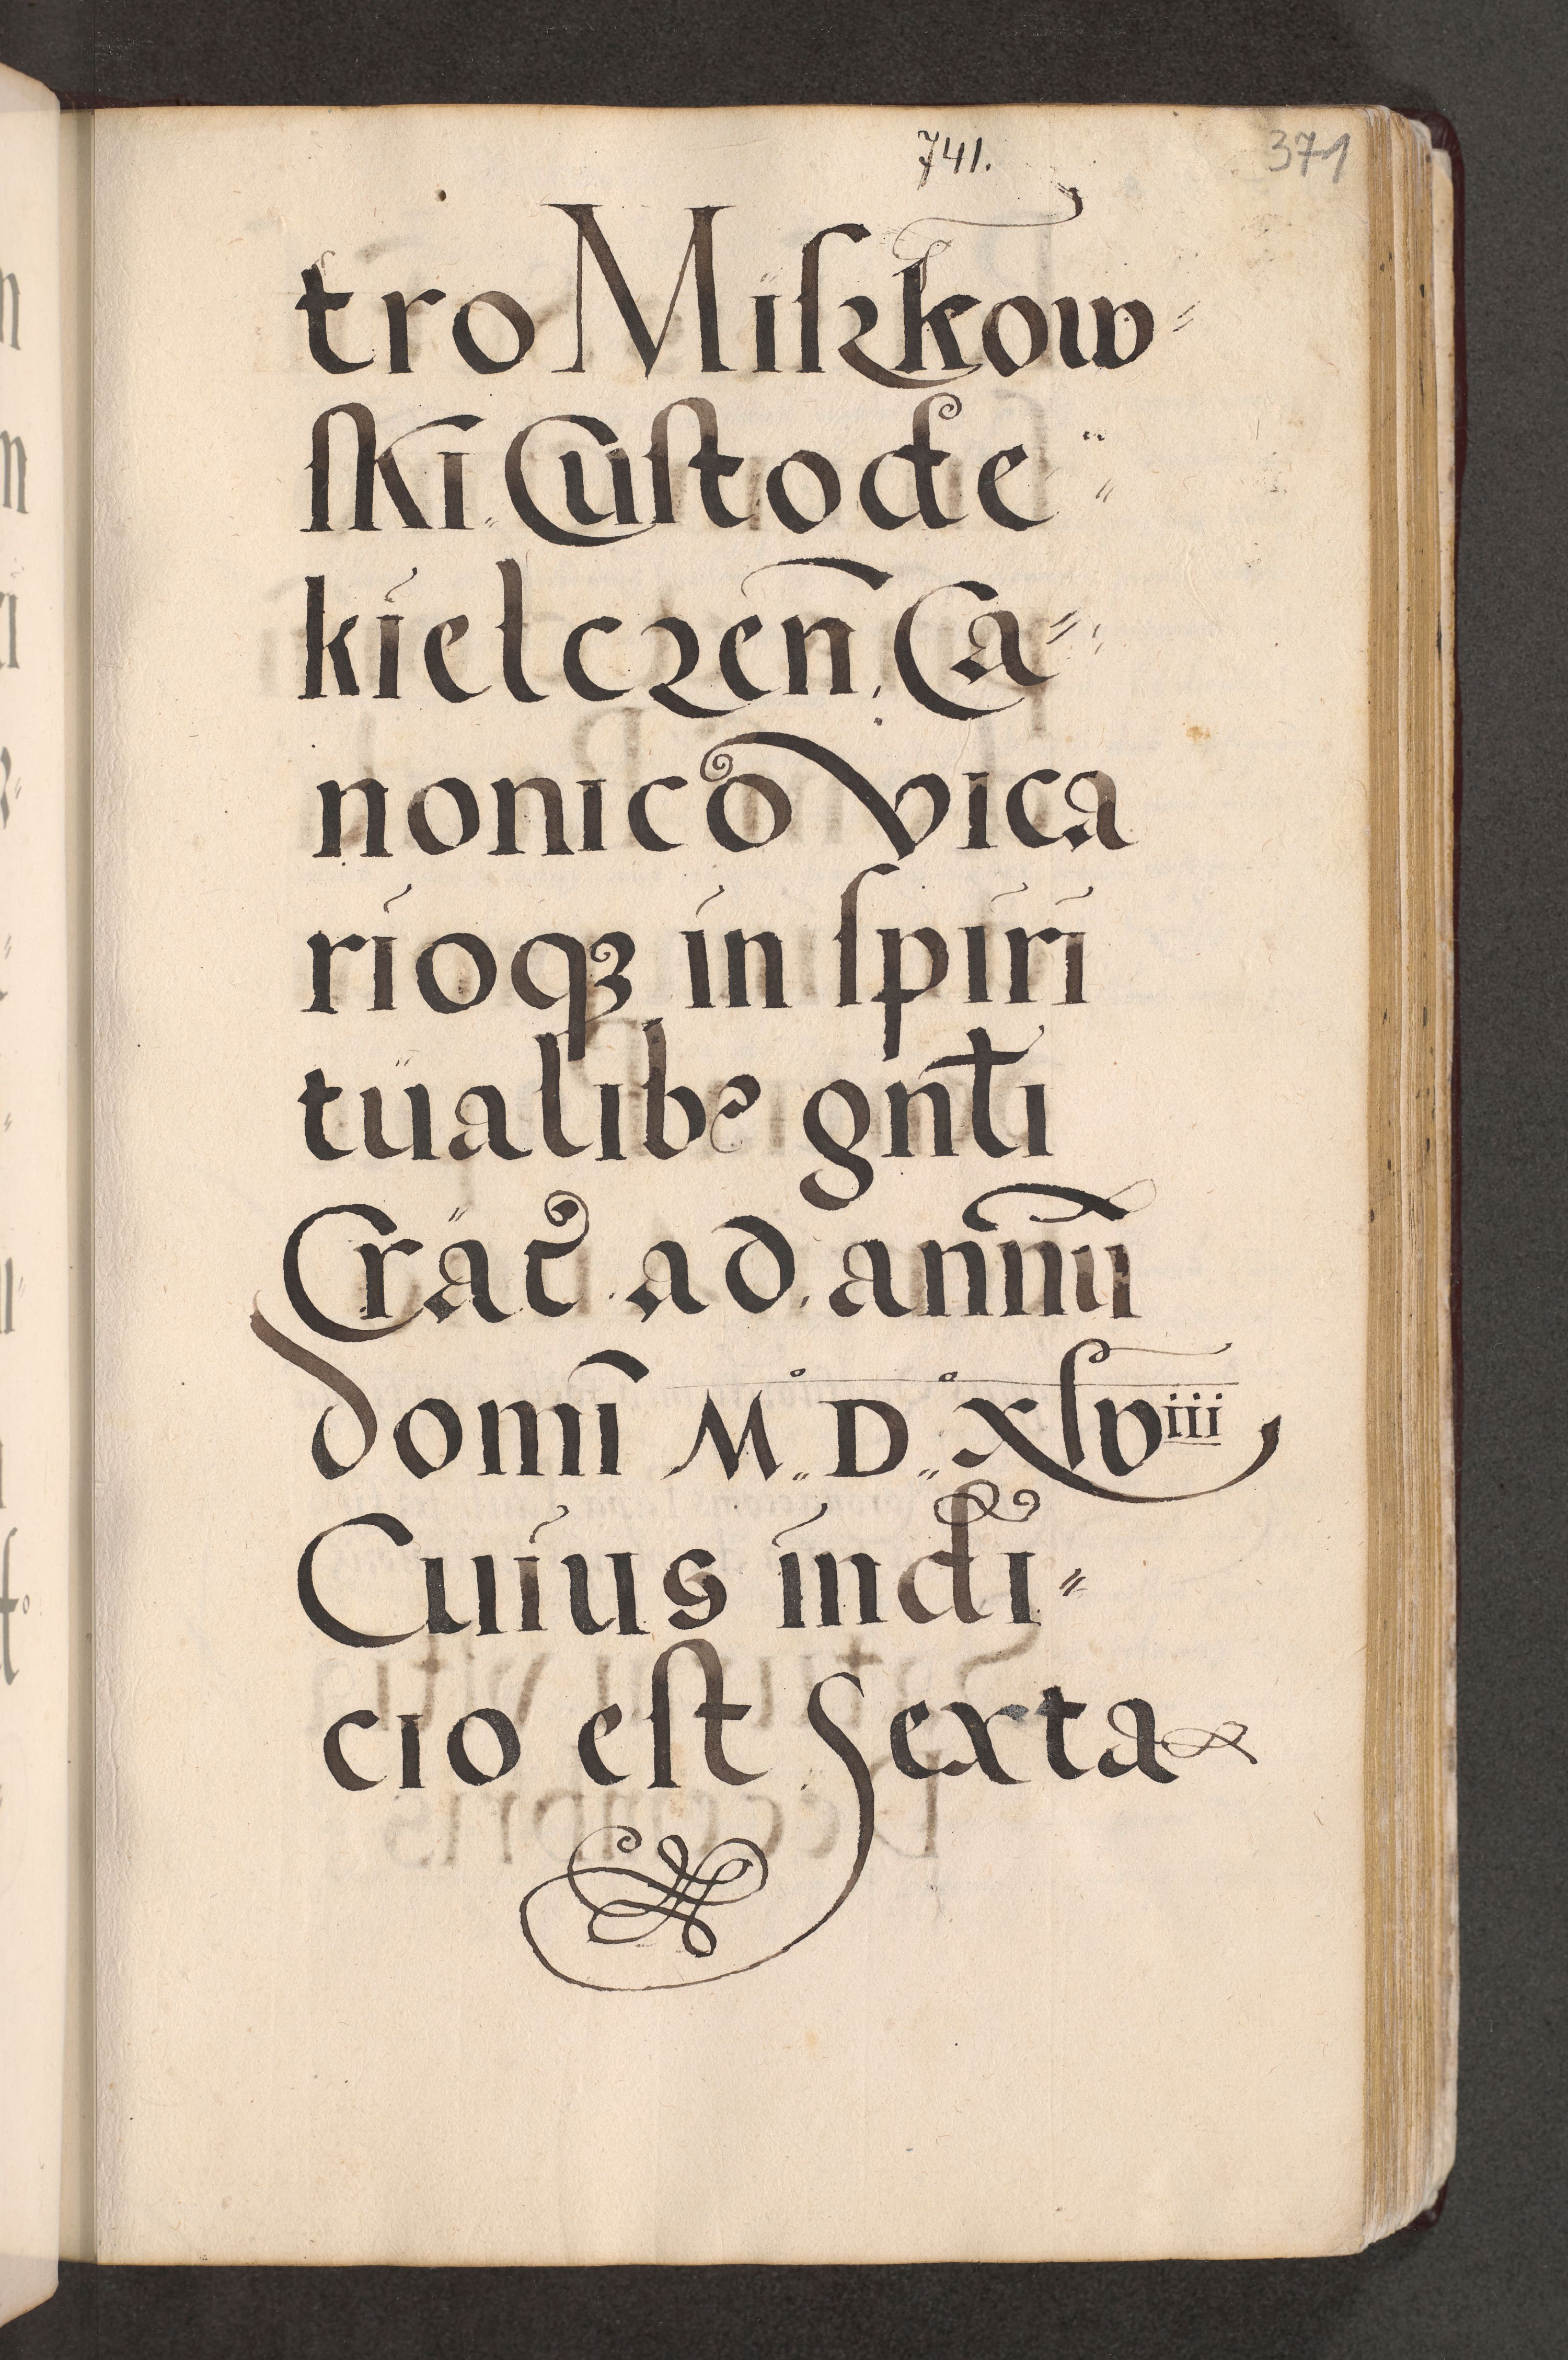 741.
371
tro Miſzkow⸗
ſki Cuſtode
kielczen̄ Ca⸗
nonico vica
rioqꝫ in ſpiri
tualibꝫ gn̄li
Crac̄ ad annū
domī M D xlviii
Cuius indi⸗
cio eſt Sexta